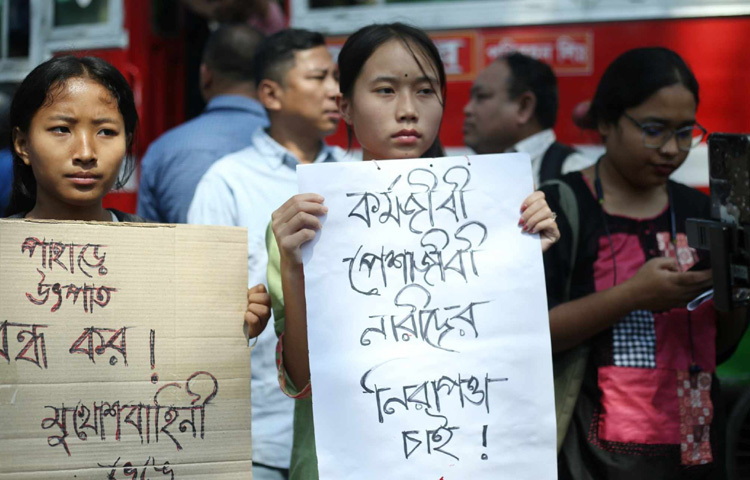 পাহাড়ে
উৎপাত
বন্ধ কর !
মুখোশবাহিনী
ভেঙে
কর্মজীবী
পেশাজীবী
নারীদের
নিরাপত্তা
চাই !